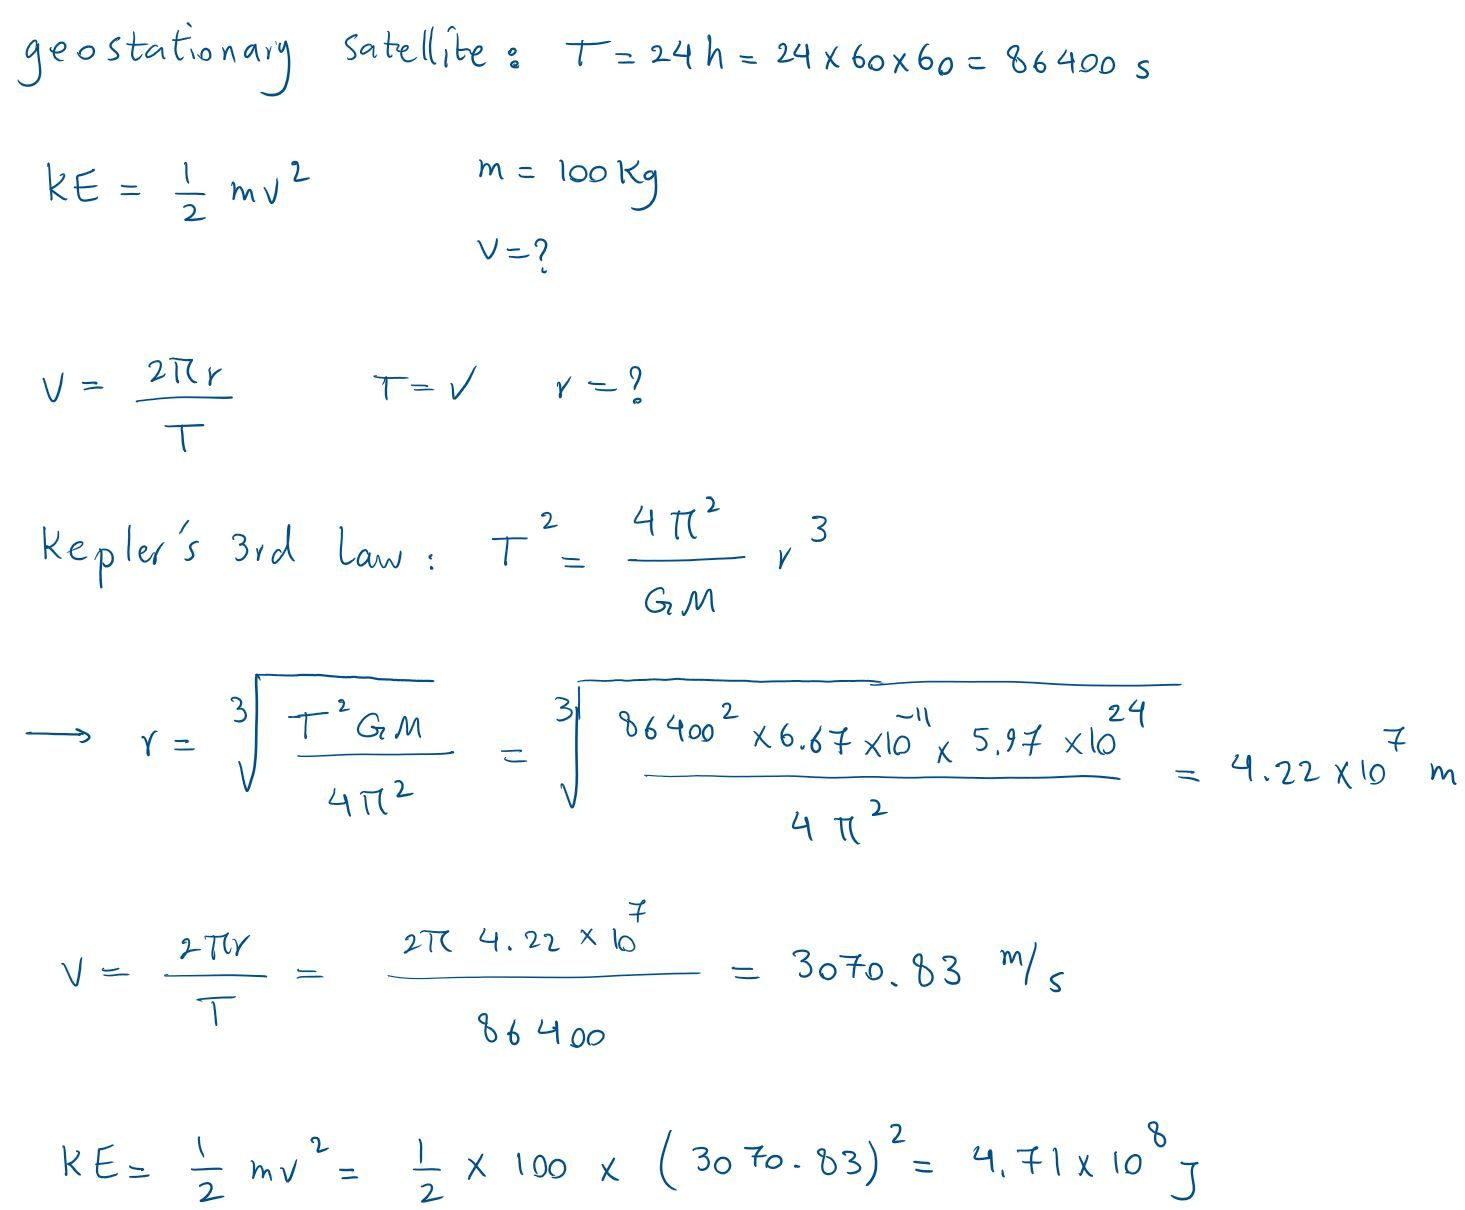 geostationary satellite: T = 24 h = 24 × 60 × 60 = 86400 s
KE = 1/2 mv² m = 100 Kg
v = ?
v = 2πr/T T = ✓ r = ?
Kepler's 3rd Law: T² = 4π²/GM r³
→ r = ∛(T²GM/4π²) = ∛(86400² × 6.67 × 10⁻¹¹ × 5.97 × 10²⁴/4π²) = 4.22 × 10⁷ m
v = 2πr/T = 2π 4.22 × 10⁷/86400 = 3070.83 m/s
KE = 1/2 mv² = 1/2 × 100 × (3070.83)² = 4.71 × 10⁸ J